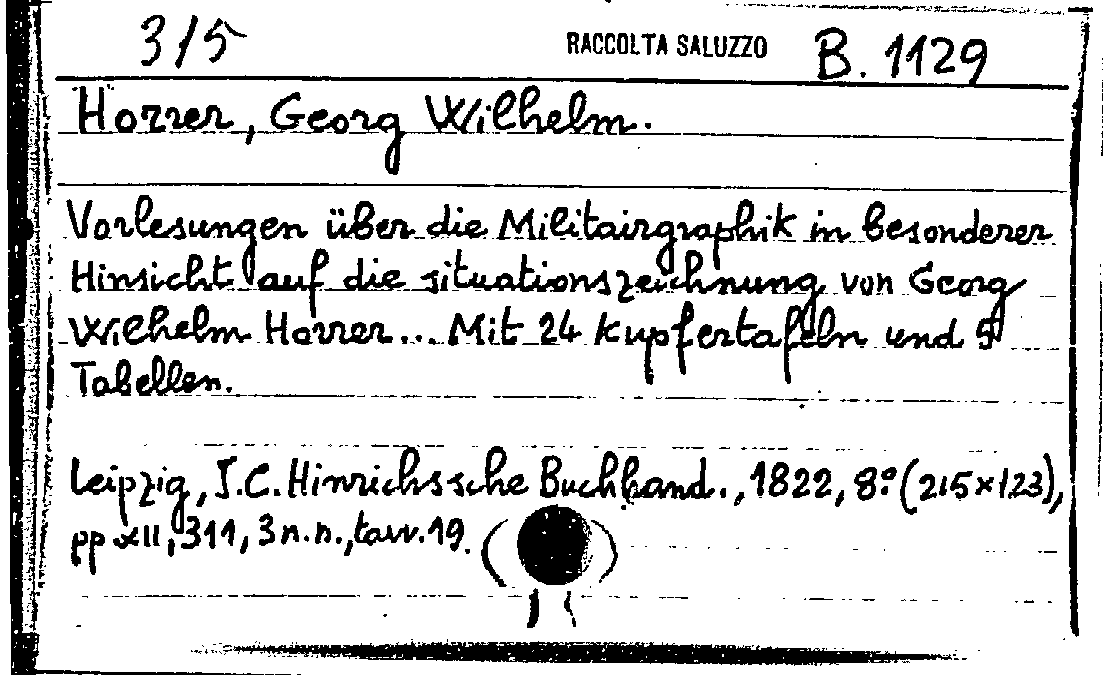 315 RACCOLTA SALUZZO B. 1129
Horrer, Georg Wilhelm.
Vorlesungen über die Militairgraphik in besonderer
Hinsicht auf die situationszeichnung von Georg
Wilhelm Horrer... Mit 24 Kupfertafeln und 5
Tabellen.
Leipzig, J.C. Hinrichssche Buchhand., 1822, 8° (215×123),
pp XII, 311, 3 n.n., tavv. 19.